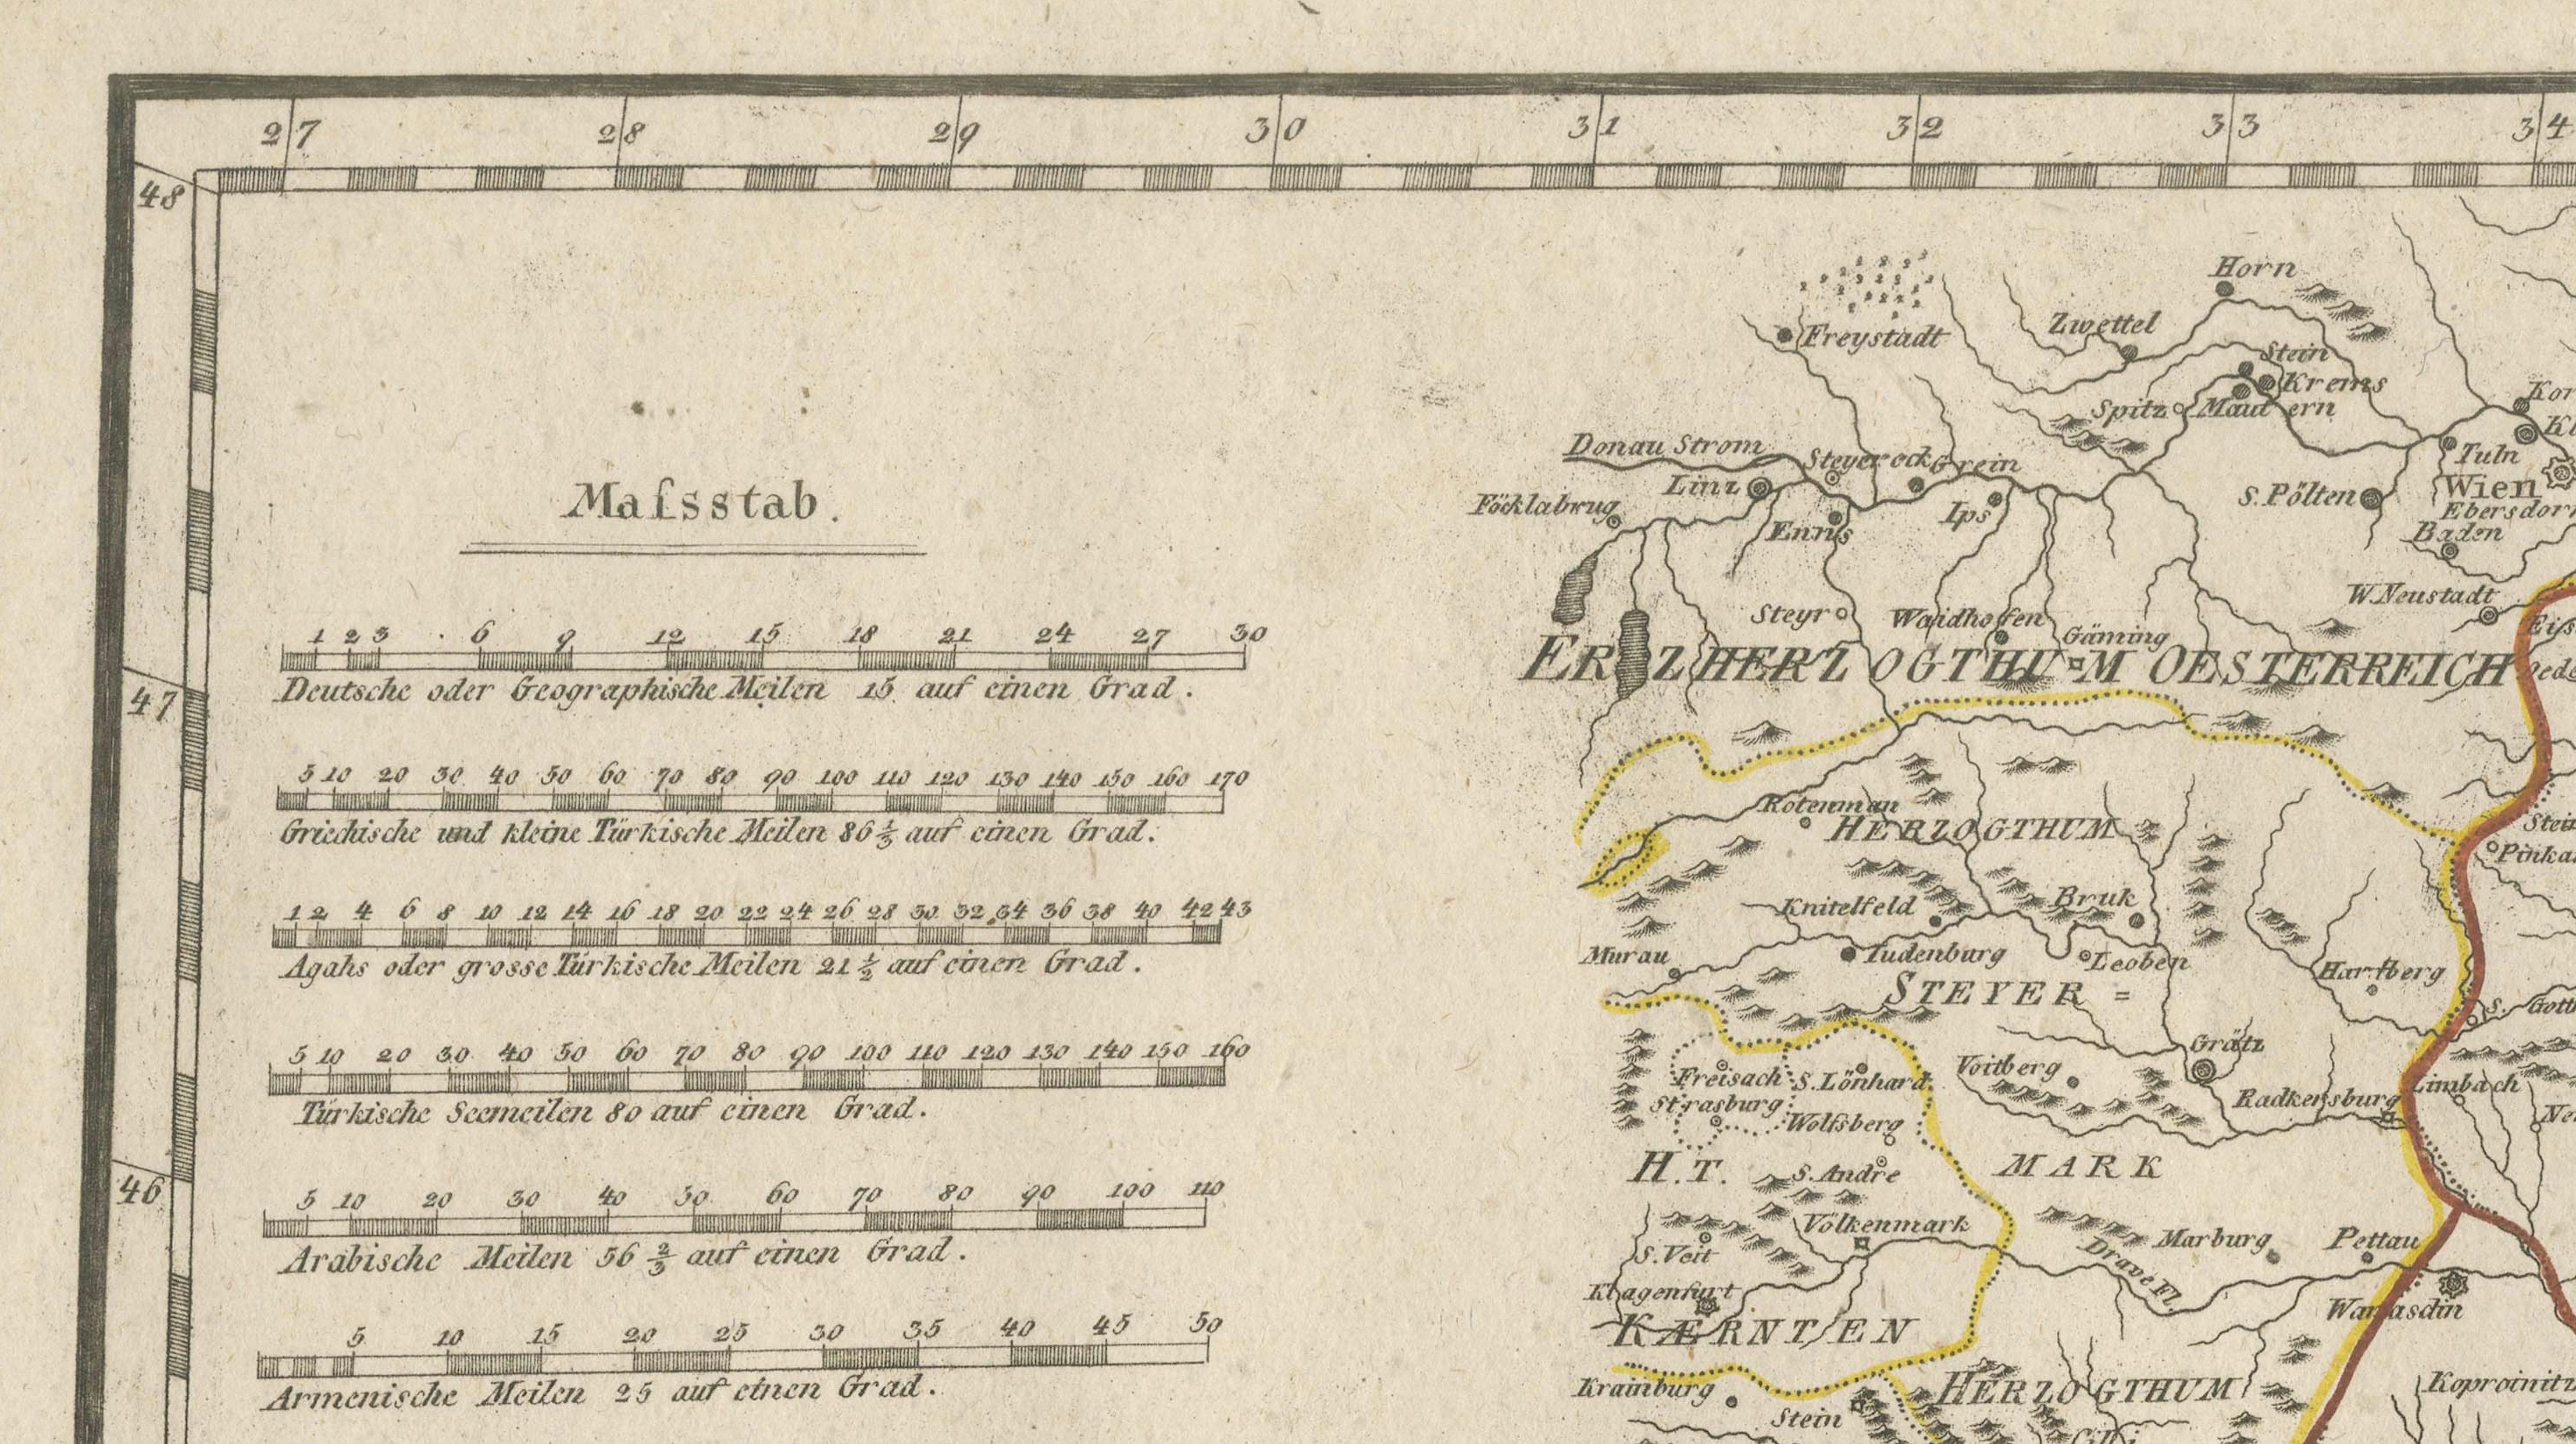 27 28 29 30 31 32 33 34
48
Horn
Zwettel
Freystadt
Stein
Krems
Spitz
Mautern
Donau Strom
Steyereck
Grein
Tuln
Linz
Wien
S. Pölten
Föcklabrug
Ips
Enns
Baden
Massstab.
W. Neustadt
Steyr
Waidhofen
Gäming
1 2 3 6 9 12 15 18 21 24 27 30
ERZHERZOGTHUM OESTERREICH
Deutsche oder Geographische Meilen 15 auf einen Grad.
47
5 10 20 30 40 50 60 70 80 90 100 110 120 130 140 150 160 170
Rotenman
HERZOGTHUM
Griechische und kleine Türkische Meilen 86 1/3 auf einen Grad.
1 2 4 6 8 10 12 14 16 18 20 22 24 26 28 30 32 34 36 38 40 42 43
Knitelfeld
Bruk
Murau
Iudenburg
Leoben
Hartberg
Agahs oder grosse Türkische Meilen 21 1/2 auf einen Grad.
STEYER =
5 10 20 30 40 50 60 70 80 90 100 110 120 130 140 150 160
Grätz
Freisach
S. Lönhard
Voitberg
Limbach
Strasburg
Radkersburg
Türkische Seemeilen 80 auf einen Grad.
Wolfsberg
H.T.
S. Andre
MARK
46
5 10 20 30 40 50 60 70 80 90 100 110
Völkenmark
S. Veit
Marburg
Pettau
Arabische Meilen 56 2/3 auf einen Grad.
Drave Fl.
Klagenfurt
Warasdin
5 10 15 20 25 30 35 40 45 50
KÆRNTEN
Armenische Meilen 25 auf einen Grad.
Krainburg
HERZOGTHUM
Koproinitz
Stein